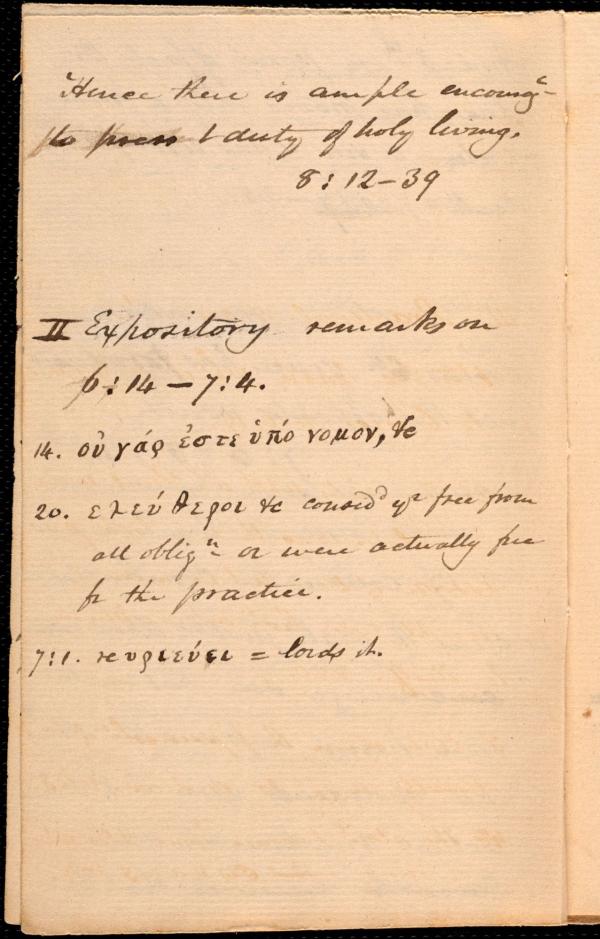 "Hence there is ample encourg-
to press t duty of holy living.
8:12–39
II Expository remarks on
6:14 – 7:4.
14. οὐ γάρ ἐστε ὑπό νομον, &c
20. ελεύθεροι &c consid^d free from
all oblig^n or were actually free
fr the practice.
7:1. κυριεύει = lords it.